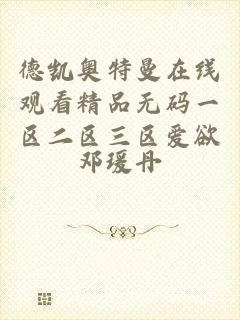 德凯奥特曼在线
观看精品无码一
区二区三区爱欲
邓瑗丹